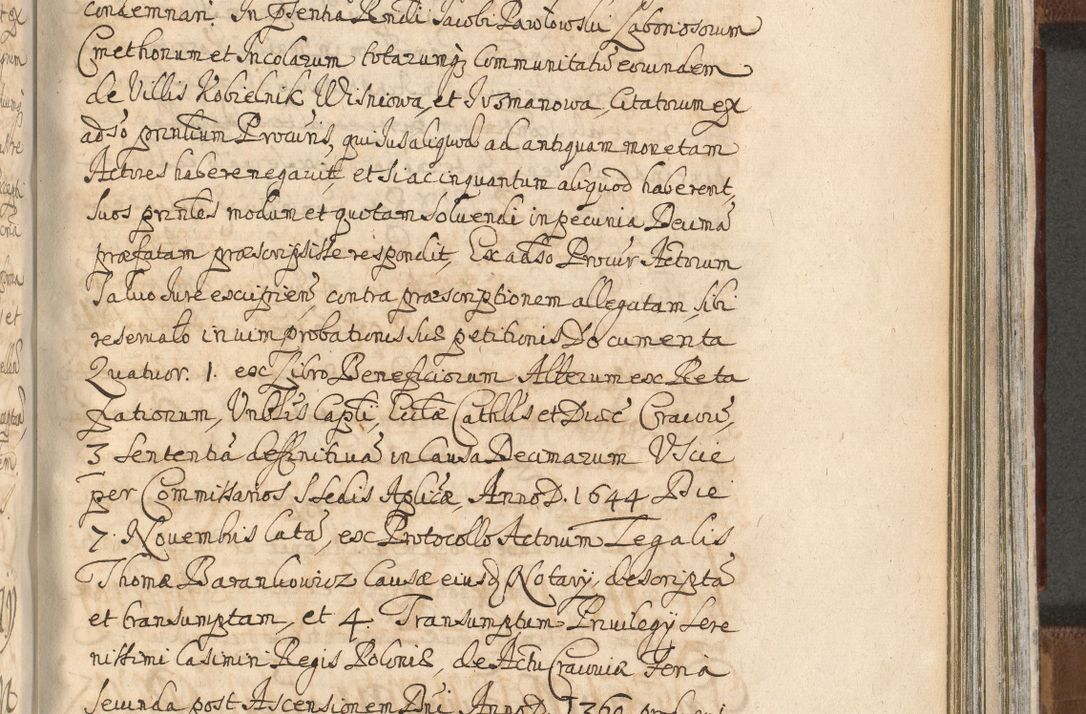 condemnari. In pñtia Rndi Jacobi Pawłowski Laboriosorum
Cmethonum et Incolarum totarumq; Communitatũ eorundem
de Villis Kobielnik, Wisniowa, et Juszmanowa, Citatorum ex
adso prñtium Procuris, qui Jus aliquod ad antiquam monetam
Actores habere negavit, et si ac inquantum aliquod haberent,
suos prñtes modum et quotam solvendi in pecunia Decimã
præfatam præscripsisse respondit, Ex adso Procur Actorum
Salvo Jure excipien, contra præscriptionem allegatam, sibi
reservato in vim probationis suæ petitionis Documenta
Quatuor. 1. ex Libro Beneficiorum Alterum ex Reta
xationum, Vnblis Capli, Eccliæ Cathlis et Diæc Cracovi,
3 Sententiã deffinitivã in Causa Decimarum Vscie
per Commissarios S Sedis Aplicæ, Anno D. 1644 Die
7. Novembris Latã, ex Protocollo Actorum Legalis
Thomæ Barankowicz Causæ eiusd Notarÿ, descriptã
et transumptam, et 4. Transumptum Privilegÿ Sere
nissimi Casimiri Regis Poloniæ, de Actu Cracoviæ Feria
secunda post Ascensionem Dñi Anno D. 1360